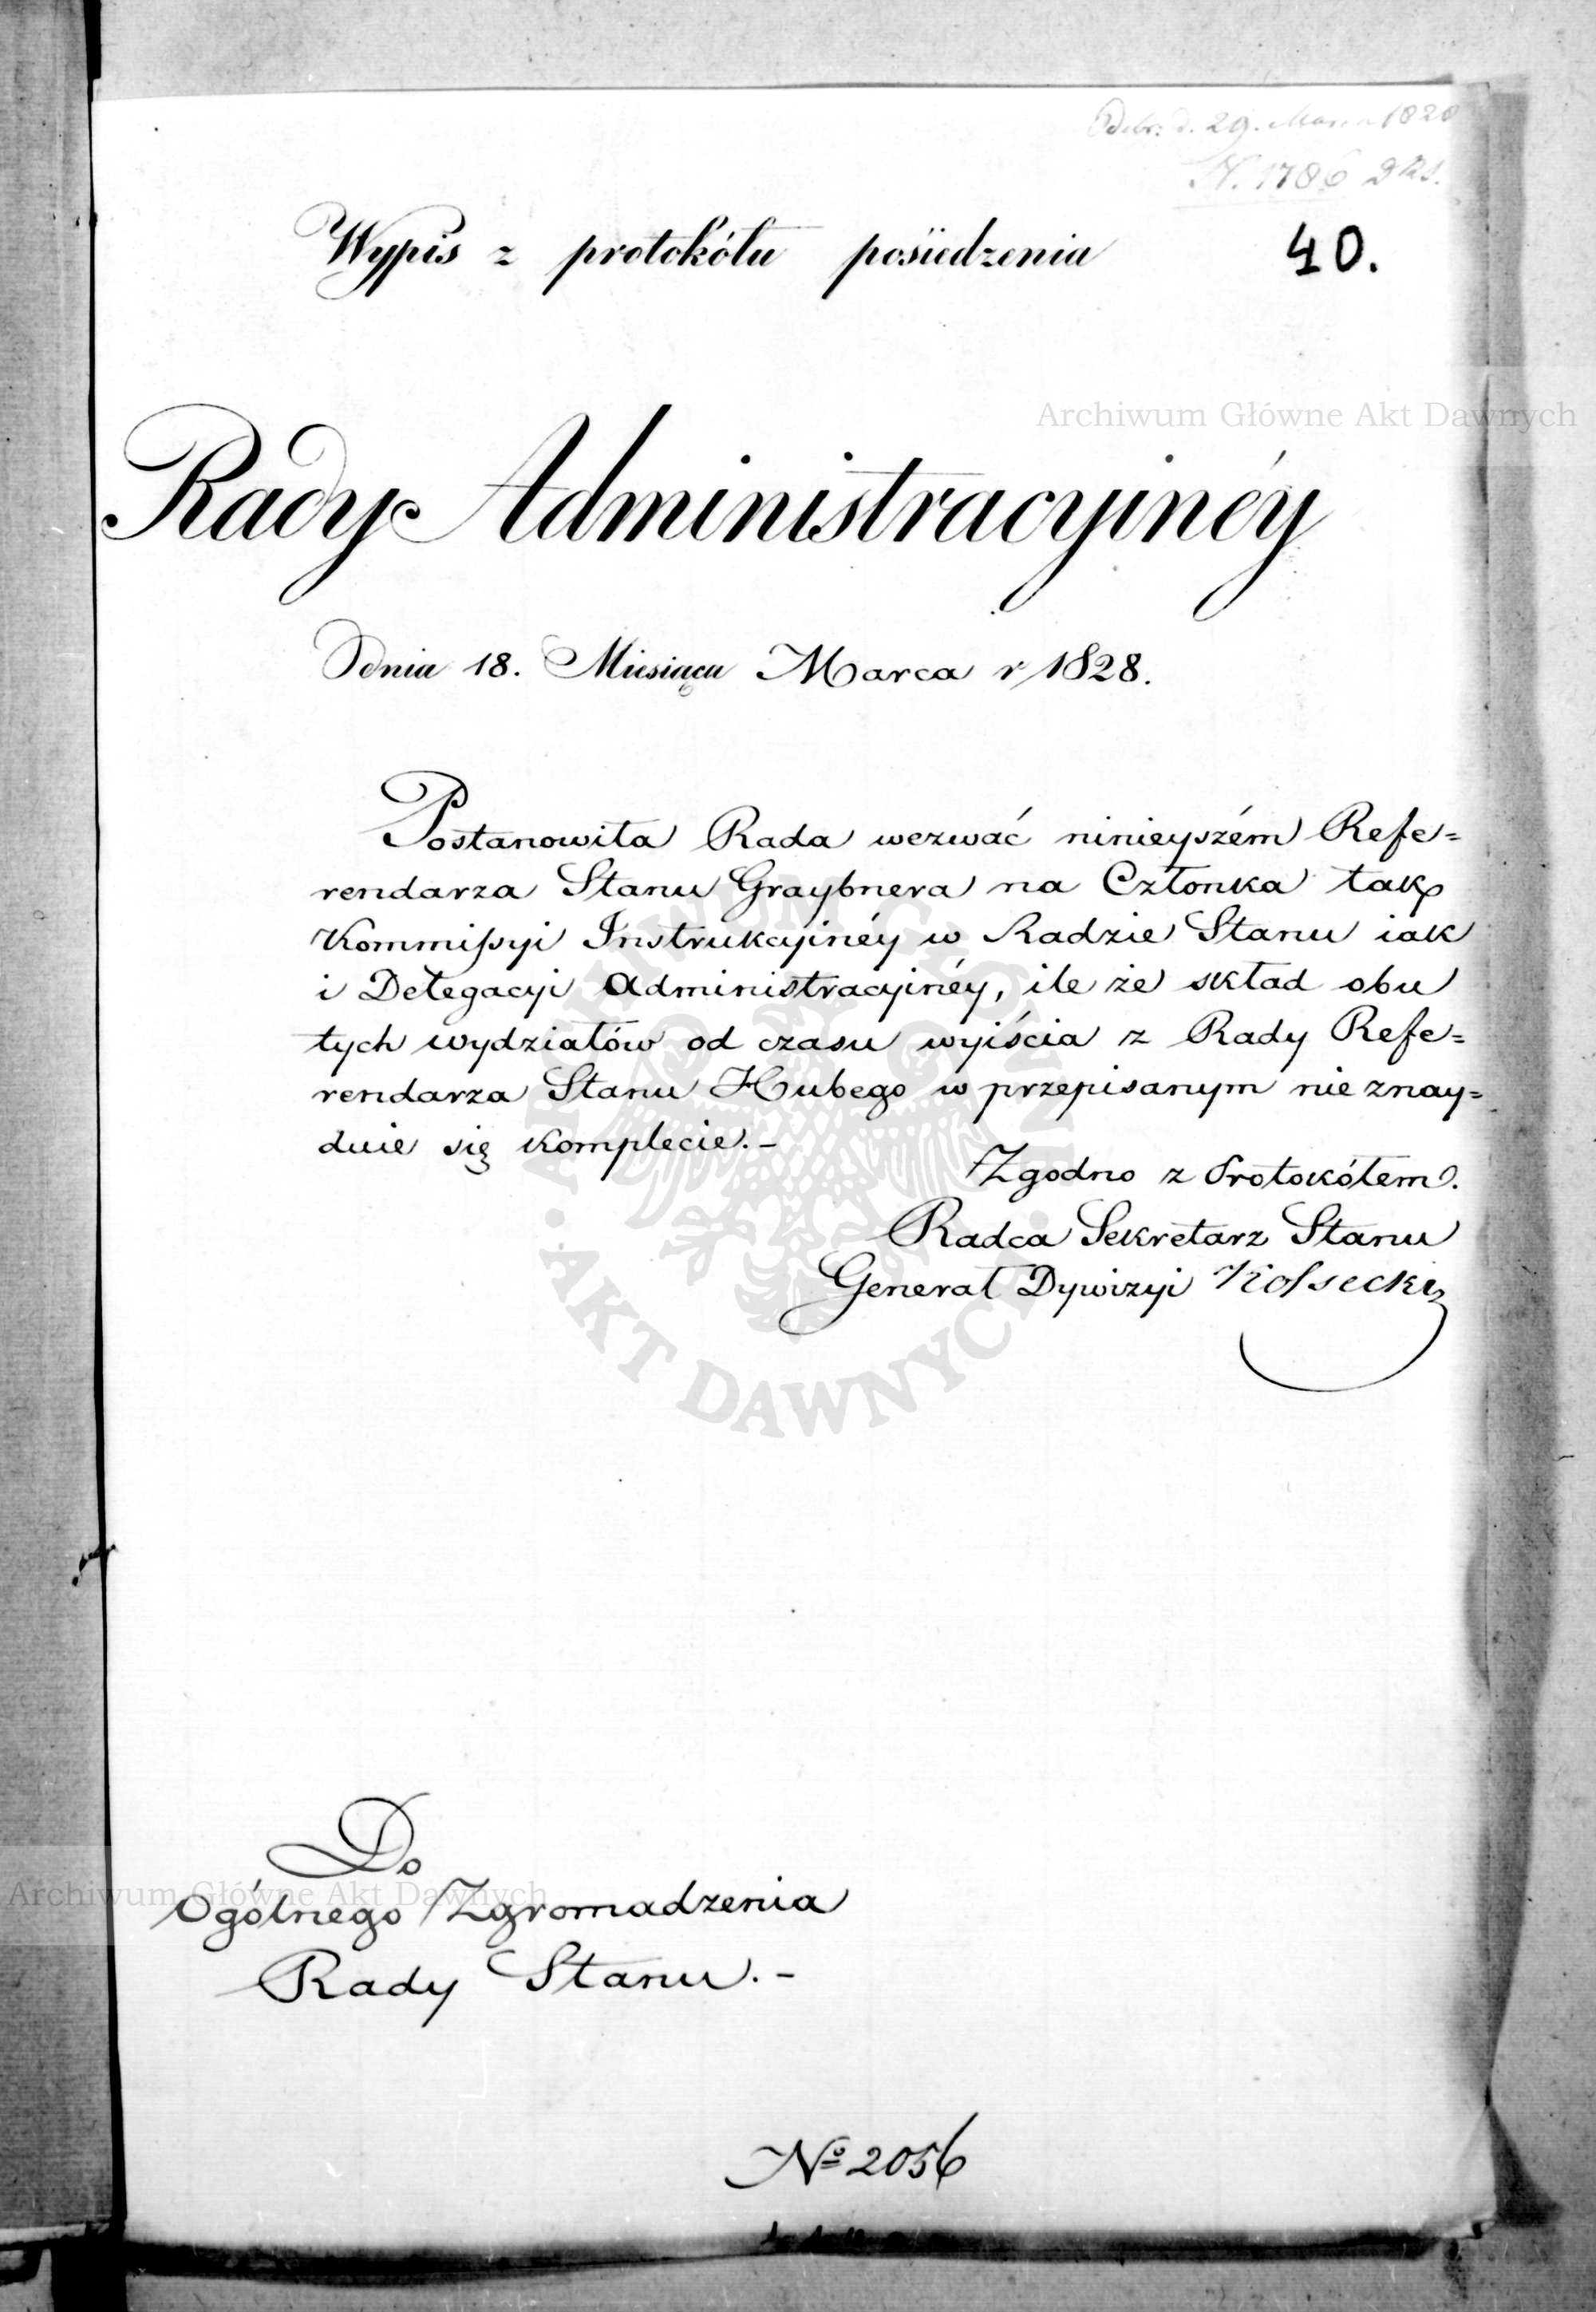 Odebr: d. 29. Marca 1828
N. 1786 DRS.
Wypis z protokółu posiedzenia
40.
Archiwum Główne Akt Dawnych
Rady Administracyinéy
Dnia 18. Miesiąca Marca r 1828.
Postanowiła Rada wezwać ninieyszém Refe=
rendarza Stanu Graybnera na Członka tak
Kommissyi Instrukcyinéy w Radzie Stanu iak
i Delegacyi Administracyinéy, ile że skład obu
tych wydziałów od czasu wyiścia z Rady Refe=
rendarza Stanu Hubego w przepisanym nie znay=
duie się komplecie.-
Zgodno z Protokółem.
Radca Sekretarz Stanu
Generał Dywizyi Kossecki
AKT DAWNYCH
Do
Archiwum Główne Akt Dawnych
Ogólnego Zgromadzenia
Rady Stanu.-
No 2056